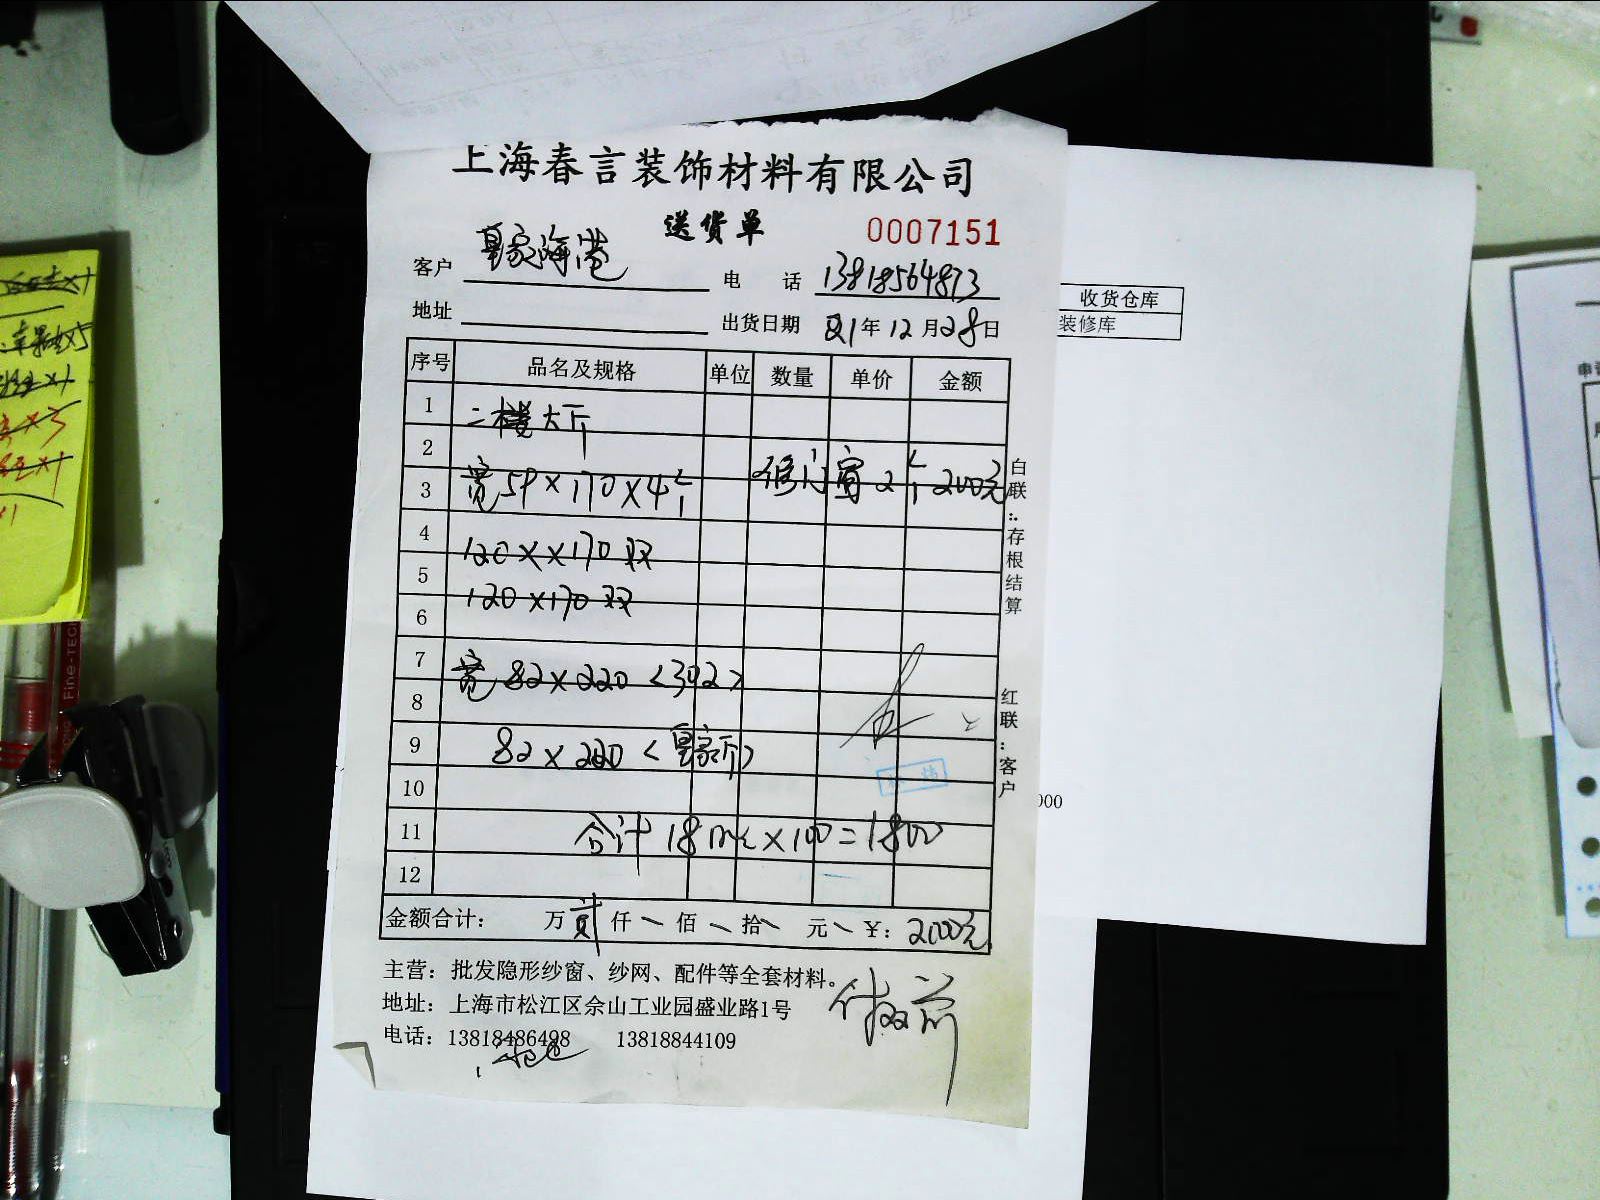 上海春言装饰材料有限公司
送货单 0007151
客户 皇家海港 电 话 13818564873
地址 出货日期 21年 12月 28日
序号 品名及规格 单位 数量 单价 金额
1 二楼大厅
2
3 宽59×170×4个 修门窗2个 200元
4 120××170双
5 120×170双
6
7 宽 82×220 <302>
8
9 82×220 <皇家厅>
10
11 合计 18m²×100=1800
12
金额合计: 万 贰 仟 佰 拾 元 ¥: 2000元
白联:存根结算
红联:客户
主营:批发隐形纱窗、纱网、配件等全套材料。
地址:上海市松江区佘山工业园盛业路1号
电话:13818486498 13818844109
收货仓库
装修库
000
Fine-TEC